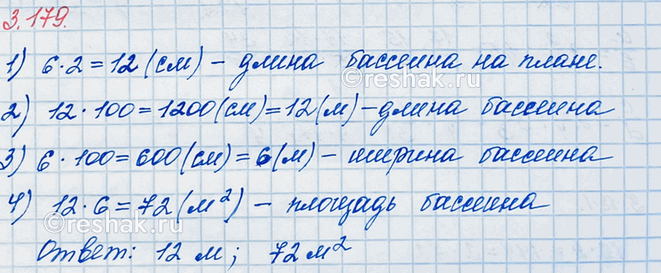 3.179.
1) 6·2=12(см) – длина бассеина на плане.
2) 12·100=1200(см)=12(м)–длина бассеина
3) 6·100=600(см)=6(м) – ширина бассеина
4) 12·6=72(м²) – площадь бассеина
Ответ: 12 м; 72 м²
©reshak.ru
©reshak.ru